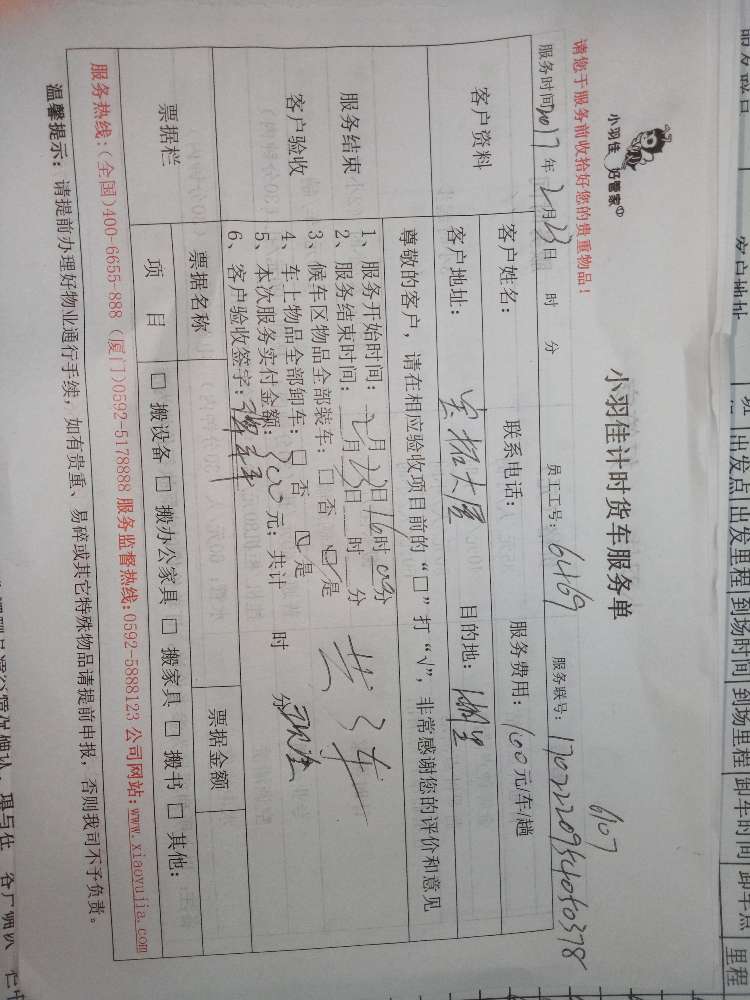 小羽佳 好管家
小羽佳计时货车服务单
请您于服务前收拾好您的贵重物品！
6107
服务时间2017年2月23日 时 分 员工工号：6469 服务联号：1702220954050378
客户资料
客户姓名： 联系电话： 服务费用：100元/车/趟
客户地址： 宏拓大厦 目的地：
尊敬的客户，请在相应验收项目前的“□”打“√”，非常感谢您的评价和意见
服务结束
客户验收
1、服务开始时间：2月23日16时00分
2、服务结束时间： 月 日 时 分
3、候车区物品全部装车：□ 否 ☑是
4、车上物品全部卸车：□ 否 ☑是
共3车
5、本次服务实付金额：300元；共计 时 分
6、客户验收签字：
票据栏
票据名称 票据金额
项 目 □ 搬设备 □ 搬办公家具 □ 搬家具 □ 搬书 □ 其他：
服务热线：(全国)400-6655-888 (厦门)0592-5178888 服务监督热线:0592-5888123 公司网站:www.xiaoyujia.com
温馨提示：请提前办理好物业通行手续，如有贵重、易碎或其它特殊物品请提前申报，否则我司不予负责。
客户地址
出发点 出发里程 到场时间 到场里程 卸车时间 卸车点
里程